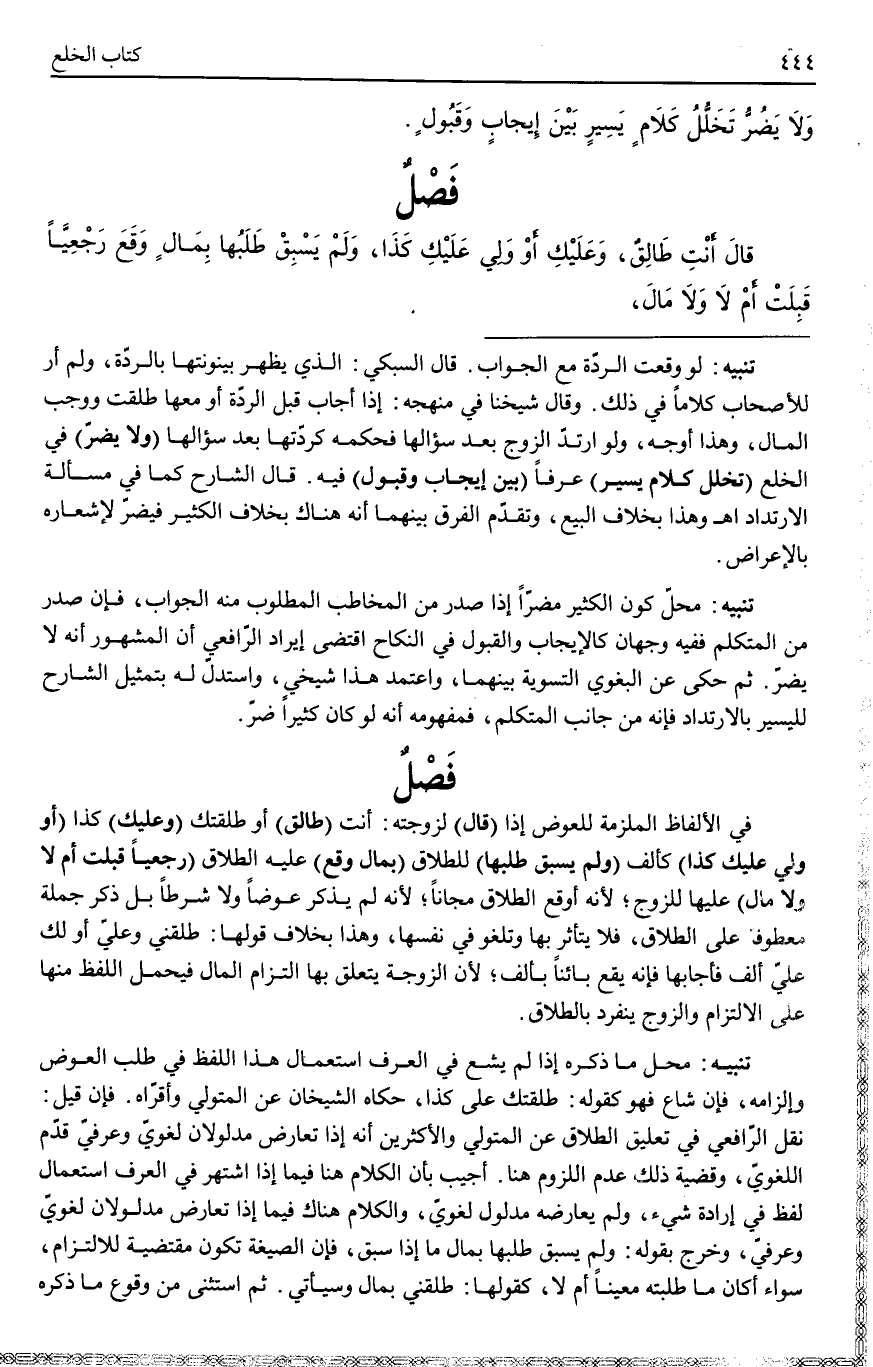 ٤٤٤ كتاب الخلع
وَلَا يَضُرُّ تَخَلُّلُ كَلَامٍ يَسِيرٍ بَيْنَ إِيجابٍ وَقَبُولٍ.
فَصْلٌ
قالَ أَنْتِ طَالِقٌ، وَعَلَيْكِ أَوْ وَلِي عَلَيْكِ كَذَا، وَلَمْ يَسْبِقْ طَلَبُها بِمَـالٍ وَقَعَ رَجْعِيَّـاً
قَبِلَتْ أَمْ لَا وَلَا مَالَ،
تنبيه: لو وقعت الـردّة مع الجـواب. قال السبكي: الـذي يظهـر بينونتهـا بالـردّة، ولم أر
للأصحاب كلاماً في ذلك. وقال شيخنا في منهجه: إذا أجاب قبل الردّة أو معها طلقت ووجب
المـال، وهـذا أوجـه، ولو ارتـدّ الزوج بعـد سؤالها فحكمـه كردّتهـا بعد سـؤالهـا (ولا يضرّ) في
الخلع (تخلل كـلام يسيـر) عـرفـاً (بين إيجـاب وقبـول) فيـه. قـال الشـارح كمـا في مسـألـة
الارتداد اهـ وهذا بخلاف البيع، وتقـدّم الفرق بينهمـا أنه هنـاك بخلاف الكثيـر فيضرّ لإشعـاره
بالإعراض.
تنبيه: محلّ كون الكثير مضرّاً إذا صدر من المخاطب المطلوب منه الجواب، فـإن صدر
من المتكلم ففيه وجهان كالإيجاب والقبول في النكاح اقتضى إيراد الرّافعي أن المشهـور أنه لا
يضرّ. ثم حكى عن البغوي التسوية بينهمـا، واعتمد هـذا شيخي، واستدلّ لـه بتمثيل الشـارح
لليسير بالارتداد فإنه من جانب المتكلم، فمفهومه أنه لو كان كثيراً ضرّ.
فَصْلٌ
في الألفاظ الملزمة للعوض إذا (قال) لزوجته: أنت (طالق) أو طلقتك (وعليك) كذا (أو
ولي عليك كذا) كألف (ولم يسبق طلبها) للطلاق (بمال وقع) عليـه الطلاق (رجعيـاً قبلت أم لا
ولا مال) عليها للزوج؛ لأنه أوقع الطلاق مجاناً؛ لأنه لم يـذكر عـوضاً ولا شـرطاً بـل ذكر جملة
معطوفة على الطلاق، فلا يتأثر بها وتلغو في نفسها، وهذا بخلاف قولهـا: طلقني وعليّ أو لك
عليّ ألف فأجابها فإنه يقع بـائناً بـألف؛ لأن الزوجـة يتعلق بها التـزام المال فيحمـل اللفظ منها
على الالتزام والزوج ينفرد بالطلاق.
تنبيـه: محـل مـا ذكـره إذا لم يشـع في العـرف استعمـال هـذا اللفظ في طلب العـوض
وإلزامه، فإن شاع فهو كقوله: طلقتك على كذا، حكاه الشيخان عن المتولي وأقرّاه. فإن قيل:
نقل الرّافعي في تعليق الطلاق عن المتولي والأكثرين أنه إذا تعارض مدلولان لغويّ وعرفيّ قدّم
اللغويّ، وقضية ذلك عدم اللزوم هنا. أجيب بأن الكلام هنا فيما إذا اشتهر في العرف استعمال
لفظ في إرادة شيء، ولم يعارضه مدلول لغويّ، والكلام هناك فيما إذا تعارض مدلـولان لغويّ
وعرفيّ، وخرج بقوله: ولم يسبق طلبها بمال ما إذا سبق، فإن الصيغة تكون مقتضيـة للالتـزام،
سواء أكان مـا طلبته معينـاً أم لا، كقولهـا: طلقني بمال وسيـأتي. ثم استثنى من وقوع مـا ذكره